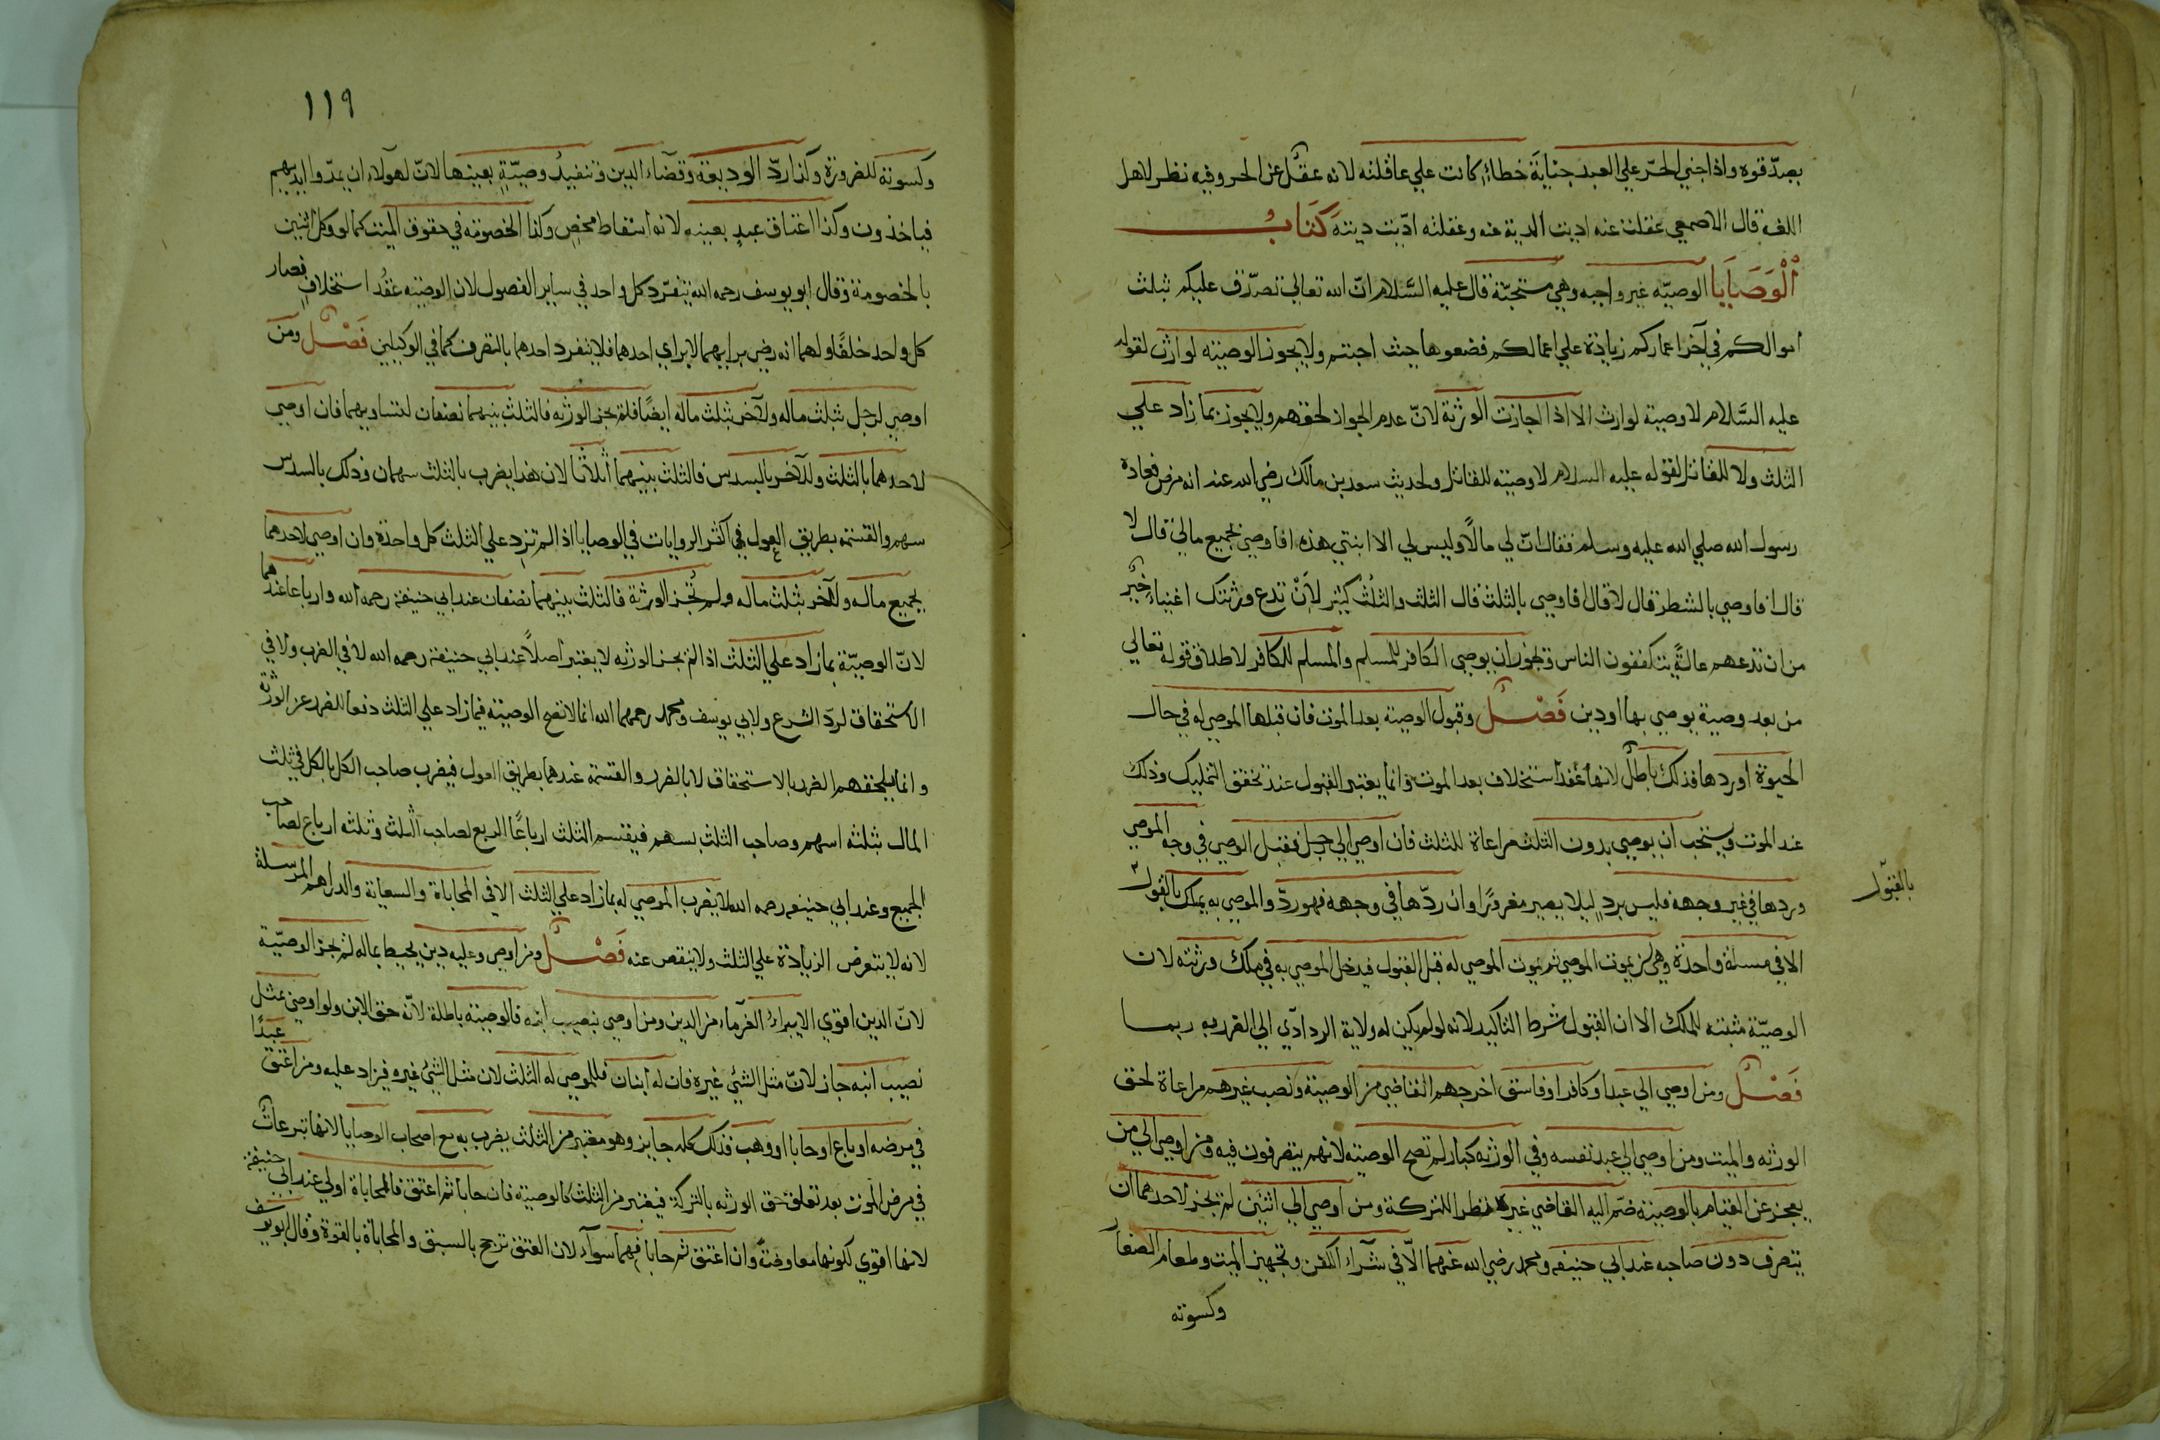 بصدقوه واذا جني الحرّ علي العبد جنايةً خطاءً كانت علي عاقلته لانه عقل عن الحر وفيه نظر لاهل
اللغة قال الاصمعي عقلت عنه اديت الدية عنه وعقلته ادّيت ديته كتاب
الوَصَايَا الوصيّه غير واجبه وهي مستحبّة قال عليه السَّلام انّ الله تعالي تصدّق عليكم بثلث
اموالكم في آخر اعماركم زيادة علي اعمالكم فضعوها حيث احبتم ولا يجوز الوصيّه لوارث لقوله
عليه السَّلام لا وصية لوارث الا اذا اجازت الورثة لانّ عدم الجواز لحقهم ولا يجوز بما زاد علي
الثلث ولا للقاتل لقوله عليه السلام لا وصيّه للقاتل ولحديث سعد بن مالك رضي الله عنه انه مرض فعاده
رسول الله صلي الله عليه وسلم فقال انّ لي مالًا وليس لي الا ابنتي هذه افاوصي بجميع مالي قال لا
قال افاوصي بالشطر قال لا قال افاوصي بالثلث قال الثلث والثلُث كثير لاَنْ تدع ورثتك اغنياءَ خيرٌ
من ان تدعهم عالةً يتكففون الناس ويجوز ان يوصي الكافر للمسلم والمسلم للكافر لاطلاق قوله تعالي
من بعد وصية يوصي بها او دين فَصْل وقبول الوصية بعد الموت فان قبلها الموصي له في حال
الحيوة او ردها فذلك باطلٌ لانها عُقد استخلاف بعد الموت وانما يعتبر القبول عند تحقق التمليك وذلك
عند الموت ويستحب ان يوصي بدون الثلث مراعاة للثلث فان اوصي الي رجل فقبل الوصي في وجه الموصي
وردها في غير وجهه فليس بردٍ ليلا يصير مغرورًا وان ردّها في وجهه فهو ردّ والموصي به يملك بالقبول
بالقبول
الا في مسئلة واحدة وهي ان يموت الموصي ثم يموت الموصي له قبل القبول فيدخل الموصي به في ملك ورثته لان
الوصيّة مثبته للملك الا ان القبول شرط التاكيد لانه لو لم يكن له ولاية الرد ادّي الي الضرر به ربما
فَصْل ومن اوصي الي عبد او كافر او فاسق اخرجهم القاضي من الوصية ونصب غيرهم مراعاة لحق
الورثه والميت ومن اوصي الي عبد نفسه وفي الورثه كبار لم تصح الوصيّه لانهم يتصرفون فيه ومن اوصي الي من
يعجز عن القيام بالوصية ضمّ اليه القاضي غيره نظرا للتركة ومن اوصي الي اثنين لم يجز لاحدهما ان
يتصرف دون صاحبه عند ابي حنيفه ومحمد رضي الله عنهما الّا في شراء الكفن وتجهيز الميت وطعام الصغار
وكسوته
١١٩
وكسوته للضرورة وكذا ردّ الوديعة وقضاء الدين وتنفيذُ وصيّةٍ بعينها لانّ لهولاء ان يمدّوا ايديهم
فياخذون وكذا اعتاق عبدٍ بعينه لانه اسقاط محض وكذا الخصومه في حقوق الميت كما لو وكل اثنين
بالخصومة وقال ابو يوسف رحمه الله يتفرّد كل واحد في ساير الفصول لان الوصيّه عقْد استخلافٍ فصار
كل واحد خلفًا ولهما انه رضي برايهما لا براي احدهما فلا ينفرد احدهما بالتصرف كما في الوكيلين فَصْل ومن
اوصي لرجل بثلث ماله ولآخر بثلث ماله ايضًا فلم يجز الورثه فالثلث بينهما نصفان لتساويهما فان اوصي
لاحدهما بالثلث وللآخر بالسدس فالثلث بينهما اثلاثًا لان هذا يضرب بالثلث سهمان وذلك بالسدس
سهم والقسمة بطريق العول في اكثر الروايات في الوصايا اذا لم تزد علي الثلث كل واحدة وان اوصي لاحدهما
بجميع ماله ولآخر بثلث ماله ولم تُجز الورثة فالثلث بينهما نصفان عند ابي حنيفة رحمه الله وارباعا عندهما
لانّ الوصيّة بما زاد علي الثلث اذا لم يجز الورثه لا يعتبر اصلًا عند ابي حنيفة رحمه الله لا في الضرب ولا في
الاستحقاق لردّ الشرع ولابي يوسف ومحمد رحمهما الله انما لا تصح الوصيّه فيما زاد علي الثلث دفعا للضرر عن الورثة
وانما يلحقهم الضرر بالاستحقاق لا بالضرر والقسمة عندهما بطريق العول فيضرب صاحب الكل بالكل في ثلث
المال بثلثه اسهم وصاحب الثلث بسهم فيقسم الثلث ارباعًا الربع لصاحب الثلث وثلثه ارباع لصاحب
الجميع وعند ابي حنيفه رحمه الله لا يضرب الموصي له بما زاد علي الثلث الا في المحاباة والسعاية والدراهم المرسلة
لانه لا يتعرض الزيادة علي الثلث ولا ينقص عنه فَصْل ومن اوصي وعليه دين يحيط بماله لم يجز الوصيّة
لانّ الدين اقوي الا يبراءُ الغرماء من الدين ومن اوصي بنصيب ابنه فالوصية باطلة لانّه حق الابن ولو اوصي بمثل
نصيب ابنه جاز لانّ مثل الشئ غيره فان له ابنان فللموصي له الثلث لان مثل الشئ غيره فيزاد عليه ومن اعتق عبدًا
في مرضه او باع او حابا او وهب فذلك كله جايز وهو معتبر من الثلث يضرب به مع اصحاب الوصايا لانها تبرعاتٌ
في مرض الموت بعد تعلق حق الورثه بالتركة فيعتبر من الثلث كالوصية فان حابا ثم اعتق فالمحاباة اولي عند ابي حنيفة
لانها اقوي لكونها معاوضةً وان اعتق ثم حابا فهما سواء لان العتق ترجح بالسبق والمحاباة بالقوة وقال ابو يوسف